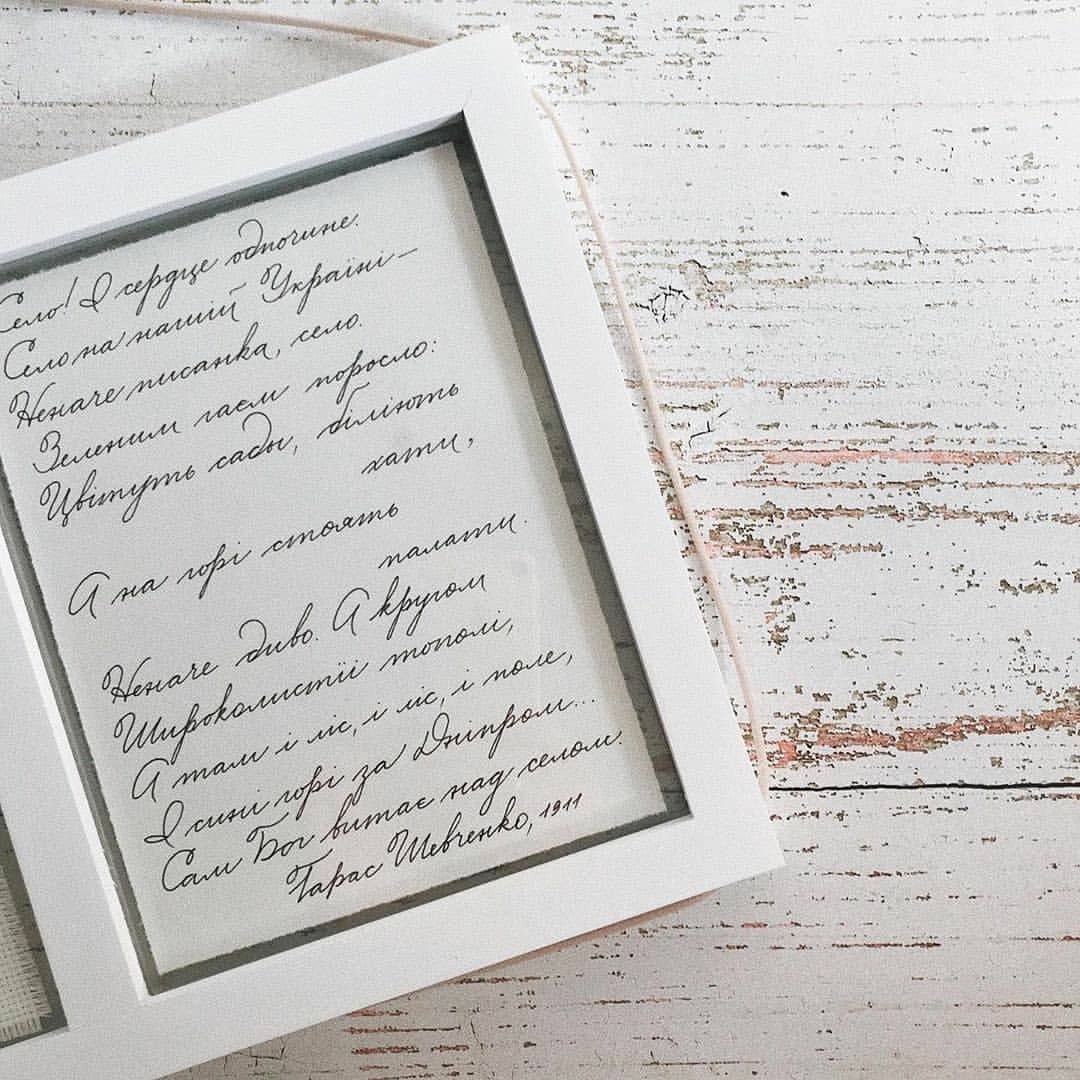 Село! І сердце одпочине.
Село на нашій Україні —
Неначе писанка, село.
Зеленим гаєм поросло:
Цвітуть сади, біліють
хати,
А на горі стоять
палати.
Неначе диво. А кругом
Широколистії тополі,
А там і ліс, і ліс, і поле,
І сині гори за Дніпром...
Сам Бог витає над селом.
Тарас Шевченко, 1911